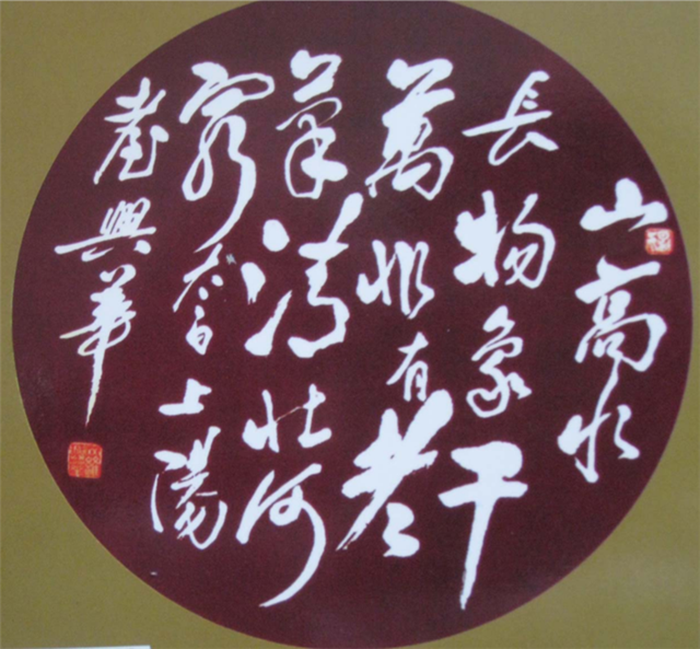 山高水
長物象千
萬非有老
筆清壯何
窮太白上陽
臺興華